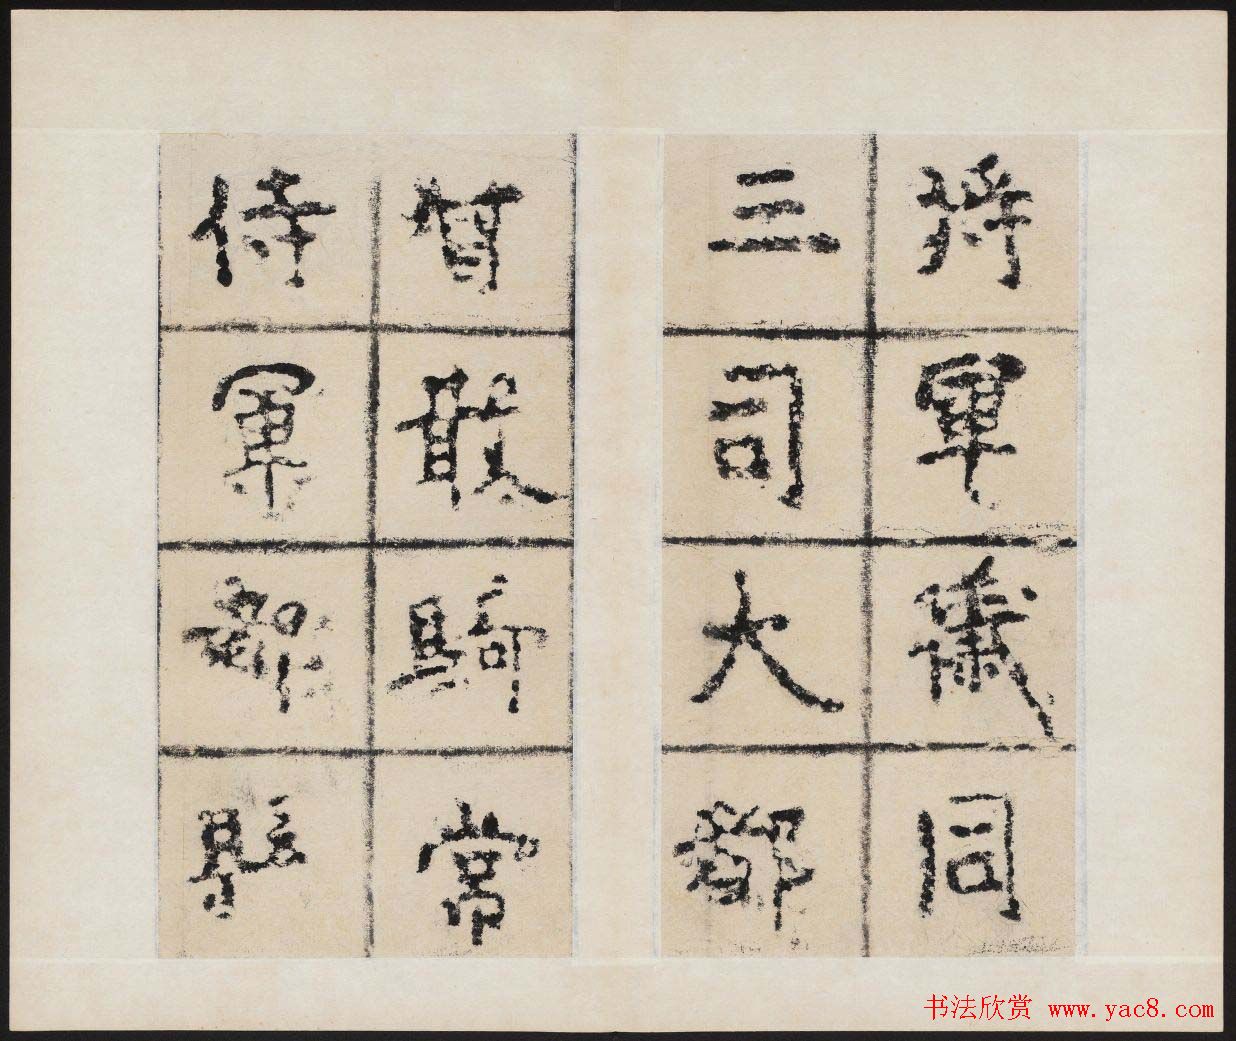 將軍儀同
三司大都
督散騎常
侍軍都縣
书法欣赏 www.yac8.com